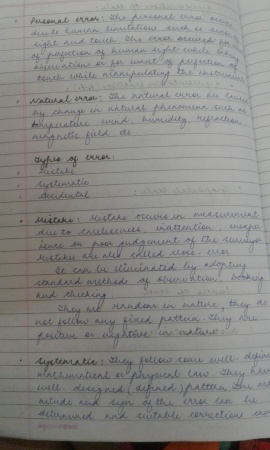 • Personal error: The personal error occurs
due to human limitations such as sense of
sight and touch. The error occurred
of perfection of human sight while taking
observations or for want of perfection of
touch while manipulating the instrument
• Natural error: The natural error are caused
by change in natural phenomena such as
temperature wind, humidity, refraction,
magnetic field etc
Types of error:
• Mistake
• Systematic
• Accidental
• Mistake: Mistake occurs in measurement
due to carelessness, inattention, inexpe
ience or poor judgement of the surveyor
Mistakes are also called error
It can be eliminated by adopting
standard methods of observation, booking
and checking
They are random in nature, they do
not follow any fixed pattern. They are
positive or negative in nature
• Systematic: They follow some well defined
mathematical or physical law. They have
well designed (defined) pattern the mag
nitude and sign of the error can be
determined and suitable corrections